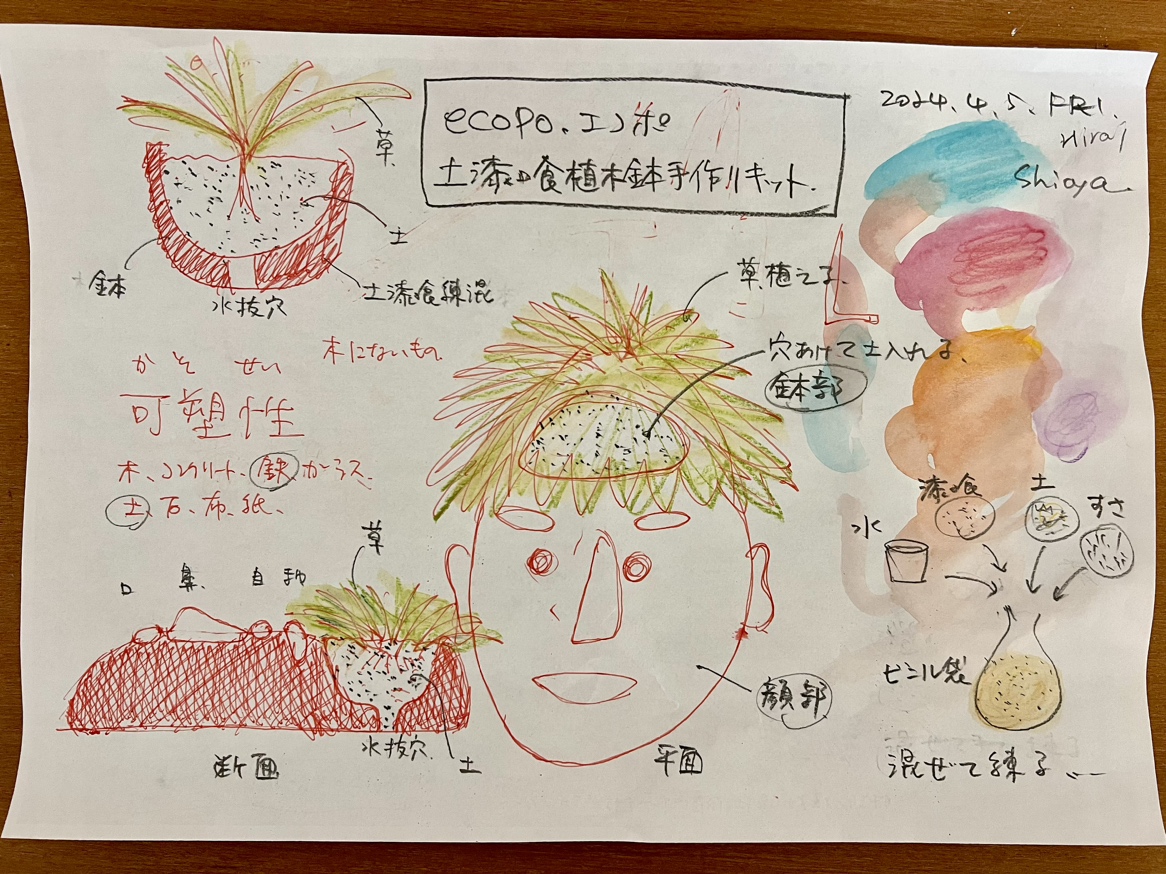 ecopo.エコポ
土漆喰植木鉢手作りキット.
2024.4.5.FRI.
Hirai
Shioya
草
土
鉢
水抜穴
土漆喰練混
かそせい
木にないもの.
可塑性
木、コンクリート、鉄 ガラス
土、石、布、紙、
草植える.
穴あけて土入れる、
鉢部
漆喰
土
すさ
水
ビニル袋
混ぜて練る
草
口 鼻、目
水抜穴.
土
断面
顔部
平面